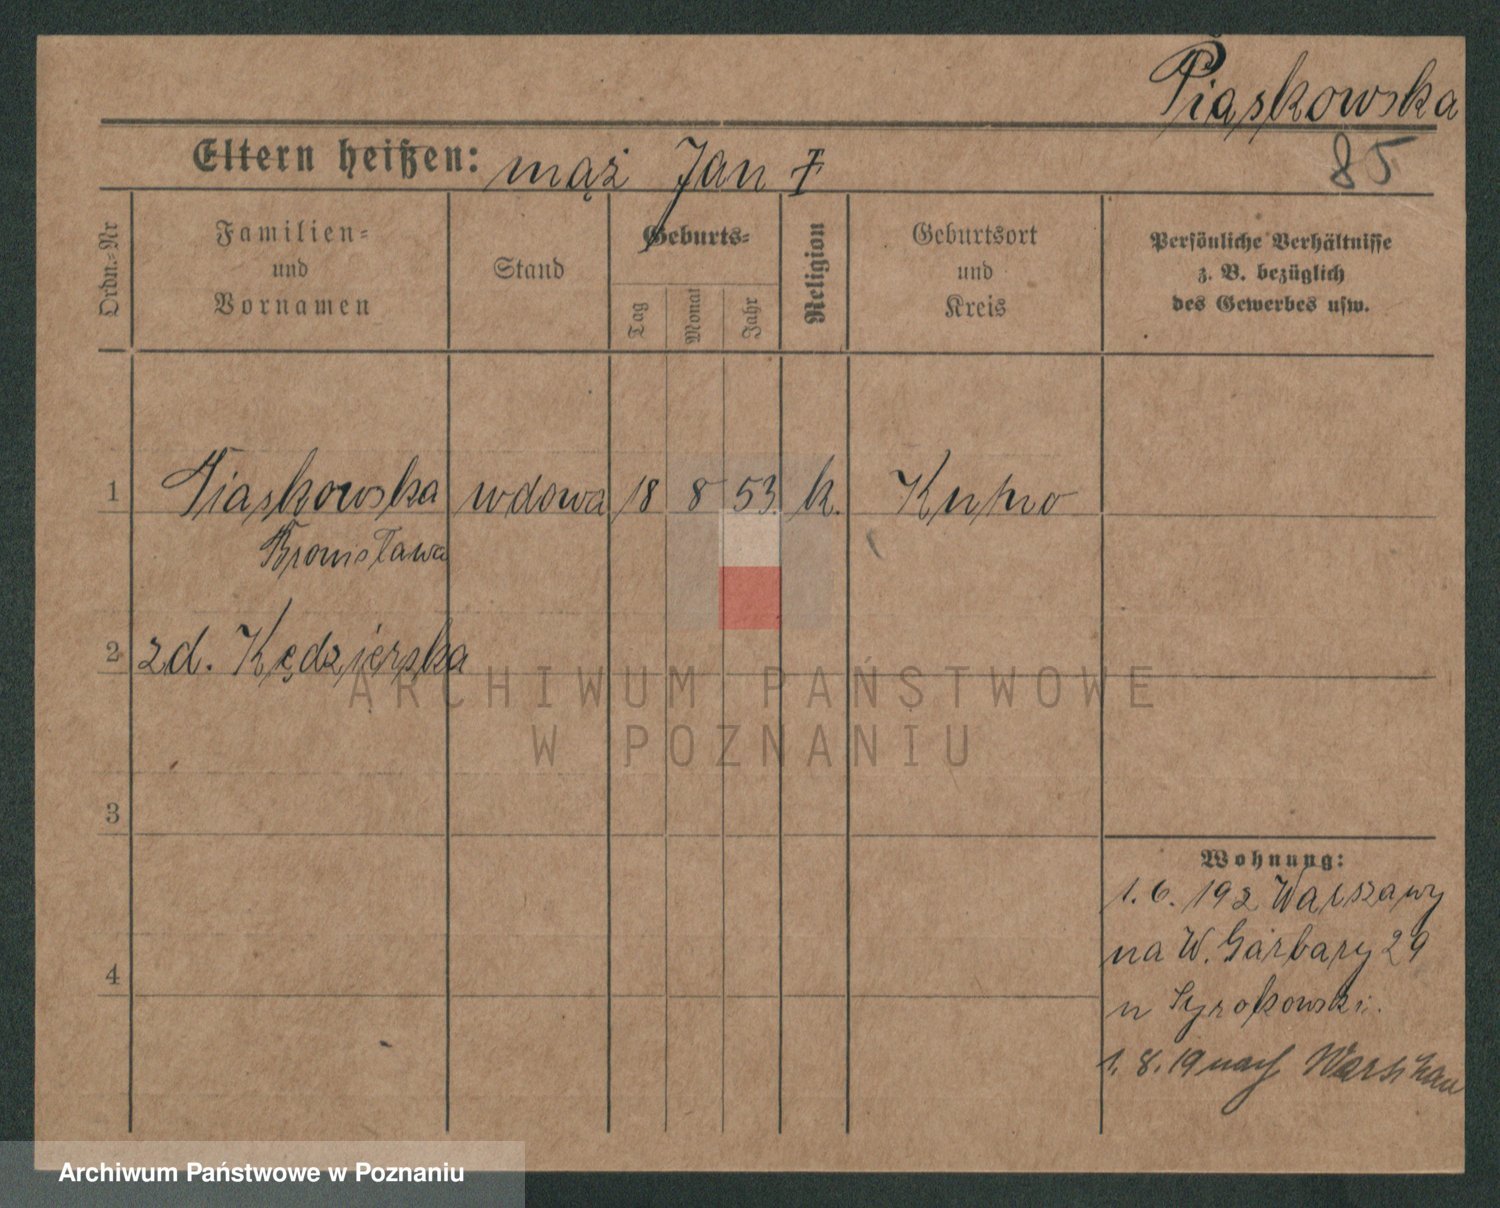 Piaskowska
85
Eltern heißen: mąż Jan
Ordn.-Nr
Familien-
und
Vornamen
Stand
Geburts-
Tag
Monat
Jahr
Religion
Geburtsort
und
Kreis
Persönliche Verhältnisse
z. B. bezüglich
des Gewerbes usw.
1 Piaskowska wdowa 18 8 53. k.
Bronisława
2 zd. Kędzierska
3
4
Wohnung:
1. 6. 19 z Warszawy
na W. Garbary 29
1. 8. 19 nach Warschau
ARCHIWUM PAŃSTWOWE
W POZNANIU
Archiwum Państwowe w Poznaniu